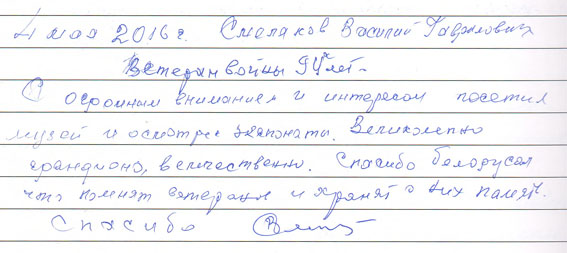 4 мая 2016 г. Смелаков Василий Гаврилович
Ветеран войны 94 лет.
С огромным вниманием и интересом посетил
музей и осмотрел экспонаты. Великолепно
грандиозно, величественно. Спасибо белорусам
что помнят ветеранов и хранят о них память.
Спасибо